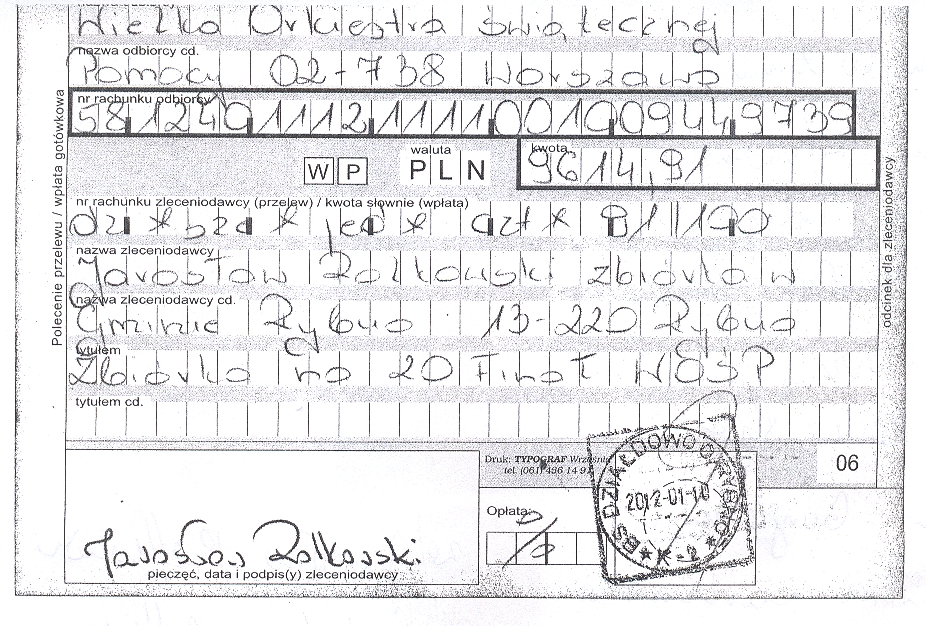 Wielka Orkiestra Świątecznej
nazwa odbiorcy cd.
Pomocy 02-738 Warszawa
nr rachunku odbiorcy
58 1240 1112 1111 0010 0944 9739
waluta
kwota
W P PLN 9614,91
nr rachunku zleceniodawcy (przelew) / kwota słownie (wpłata)
dzi * * jed * czt * 91/100
nazwa zleceniodawcy
Jarosław zbiórka w
nazwa zleceniodawcy cd.
Gminie Rybno 13-220 Rybno
tytułem
Zbiórka na 20 Finał WOŚP
tytułem cd.
Polecenie przelewu / wpłata gotówkowa
odcinek dla zleceniodawcy
Druk: TYPOGRAF Września
tel. (061) 436 14 9
06
Opłata:
BS DZIAŁDOWO O. RYBNO
2012-01-10
* K-2 *
Jarosław
pieczęć, data i podpis(y) zleceniodawcy